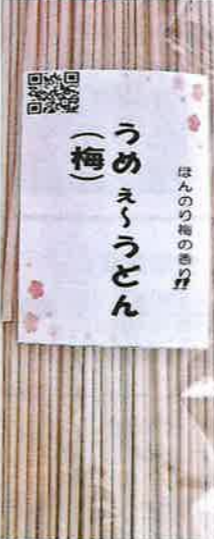 ほんのり梅の香り!!
うめぇ~うどん
(梅)